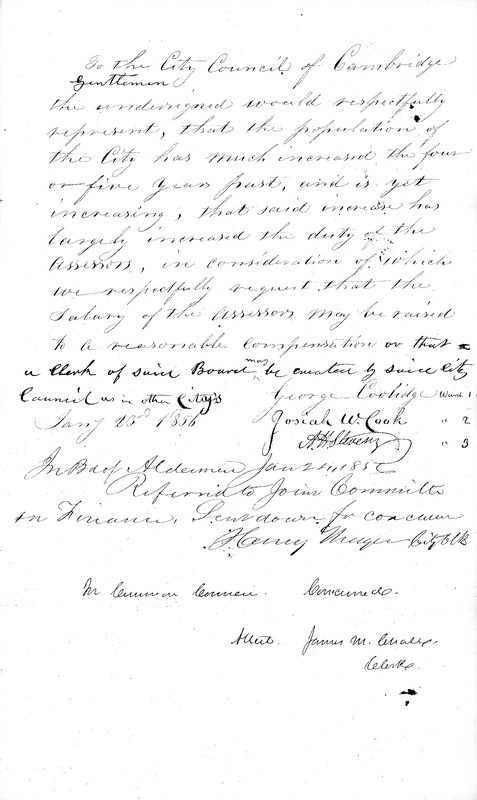 To the City Council of Cambridge
Gentlemen
the undersigned would respectfully
represent, that the population of
the City has much increased the four
or five years past, and is yet
increasing, that said increase has
largely increased the duty of the
Assessors, in consideration of which
we respectfully request that the
Salary of the Assessors may be raised
to a reasonable compensation or that a
a Clerk of said Board may be created by said City
Council as in other Citys George Coolidge Ward 1
Jany 23d 1856 Josiah W. Cook " 2
A. H. Stevens " 3
In Bd of Aldermen Jan 1856
Referred to Joint Committe
on Finance, Sent down for concurr
Henry City Clk
In Common Council. Concurred.
Attest. James M.
Clerk.